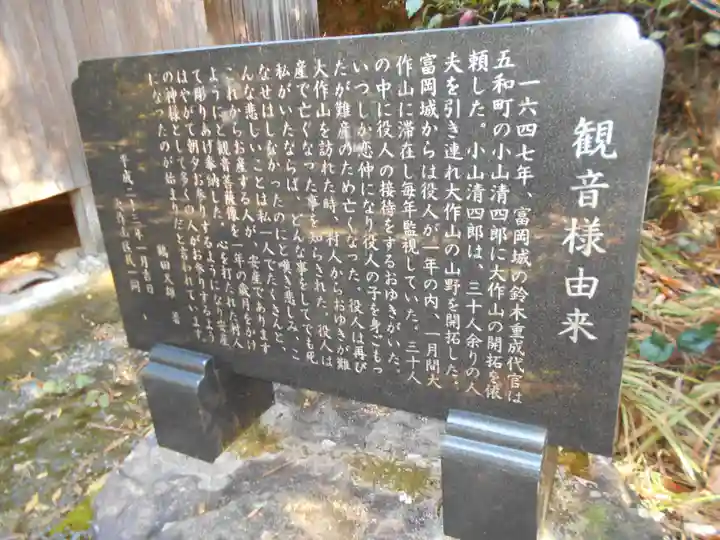 観音様由来
一六四七年、富岡城の鈴木重成代官は
五和町の小山清四郎に大作山の開拓を依
頼した。小山清四郎は、三十人余りの人
夫を引き連れ大作山の山野を開拓した。
富岡城からは役人が一年の内、一月間大
作山に滞在し毎年監視していた。三十人
の中に役人の接待をするおゆきがいた。
いつしか恋仲になり役人の子を身ごもっ
たが難産のため亡くなった。役人は再び
大作山を訪れた時、村人からおゆきが難
産で亡くなった事を知らされた。役人は
私がいたならば、どんな事をしてでも死
なせはしなかったのにと嘆き悲しみ、こ
んな悲しいことは私一人でたくさんと、
これからお産する人が、安産であります
ようにと観音菩薩像を一年の歳月をかけ
て彫りあげ奉納した。心を打たれた村人
はやがて朝夕お参りするようになり安産
の神様として多くの人がお参りするよう
になったのが始まりだと言われています。
平成二十三年一月吉日
鶴田
大作山
一同